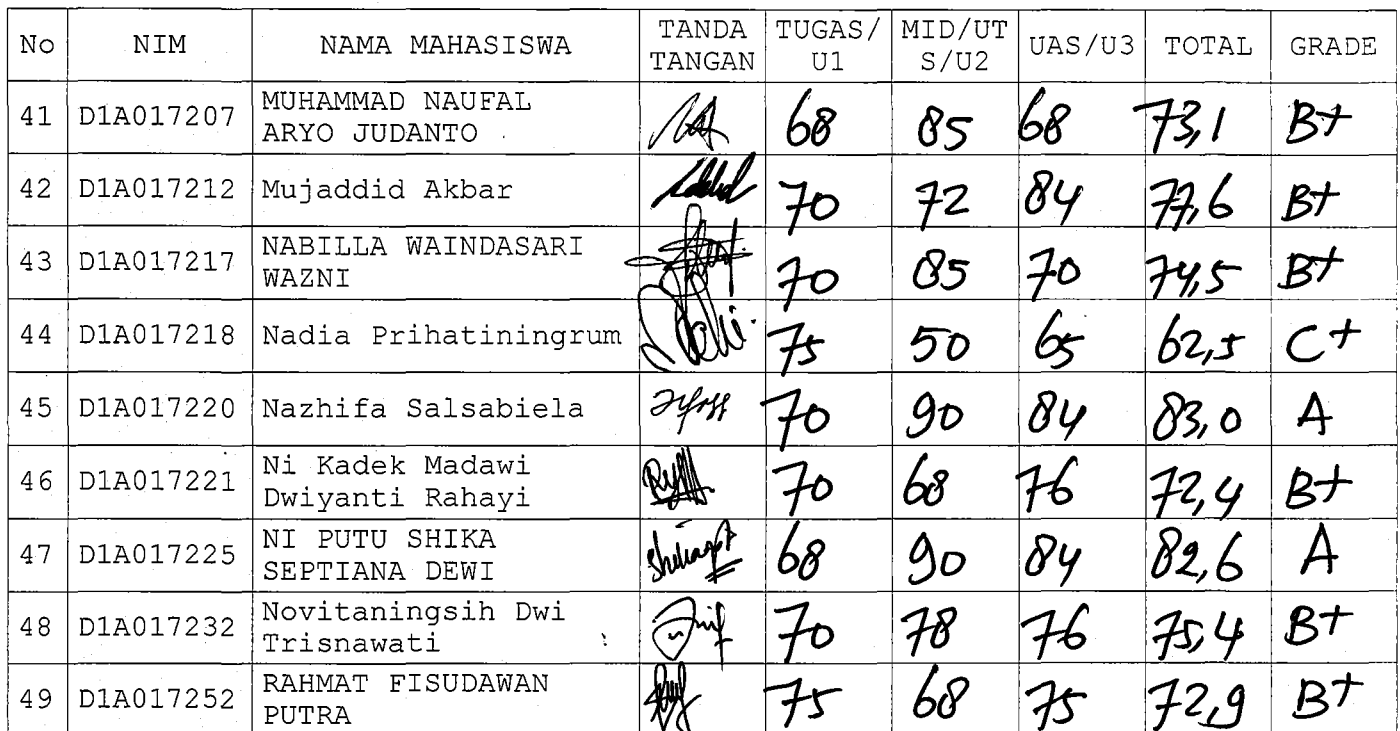 No NIM NAMA MAHASISWA TANDA TANGAN TUGAS/ U1 MID/UT S/U2 UAS/U3 TOTAL GRADE
41 D1A017207 MUHAMMAD NAUFAL ARYO JUDANTO 68 85 68 73,1 B+
42 D1A017212 Mujaddid Akbar 70 72 84 77,6 B+
43 D1A017217 NABILLA WAINDASARI WAZNI 70 85 70 74,5 B+
44 D1A017218 Nadia Prihatiningrum 75 50 65 62,5 C+
45 D1A017220 Nazhifa Salsabiela 70 90 84 83,0 A
46 D1A017221 Ni Kadek Madawi Dwiyanti Rahayi 70 68 76 72,4 B+
47 D1A017225 NI PUTU SHIKA SEPTIANA DEWI 68 90 84 82,6 A
48 D1A017232 Novitaningsih Dwi Trisnawati 70 78 76 75,4 B+
49 D1A017252 RAHMAT FISUDAWAN PUTRA 75 68 75 72,9 B+